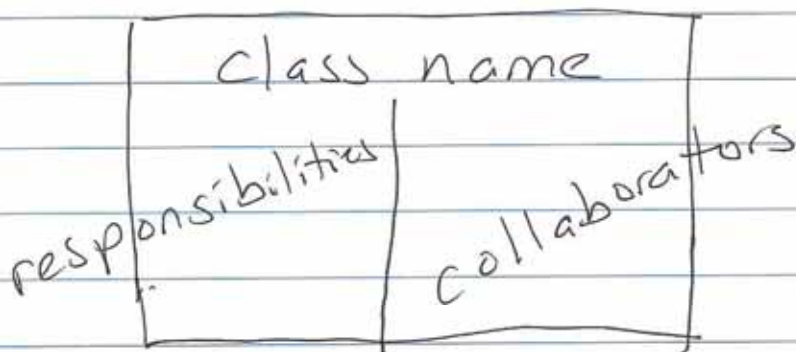 class name
responsibilities
collaborators